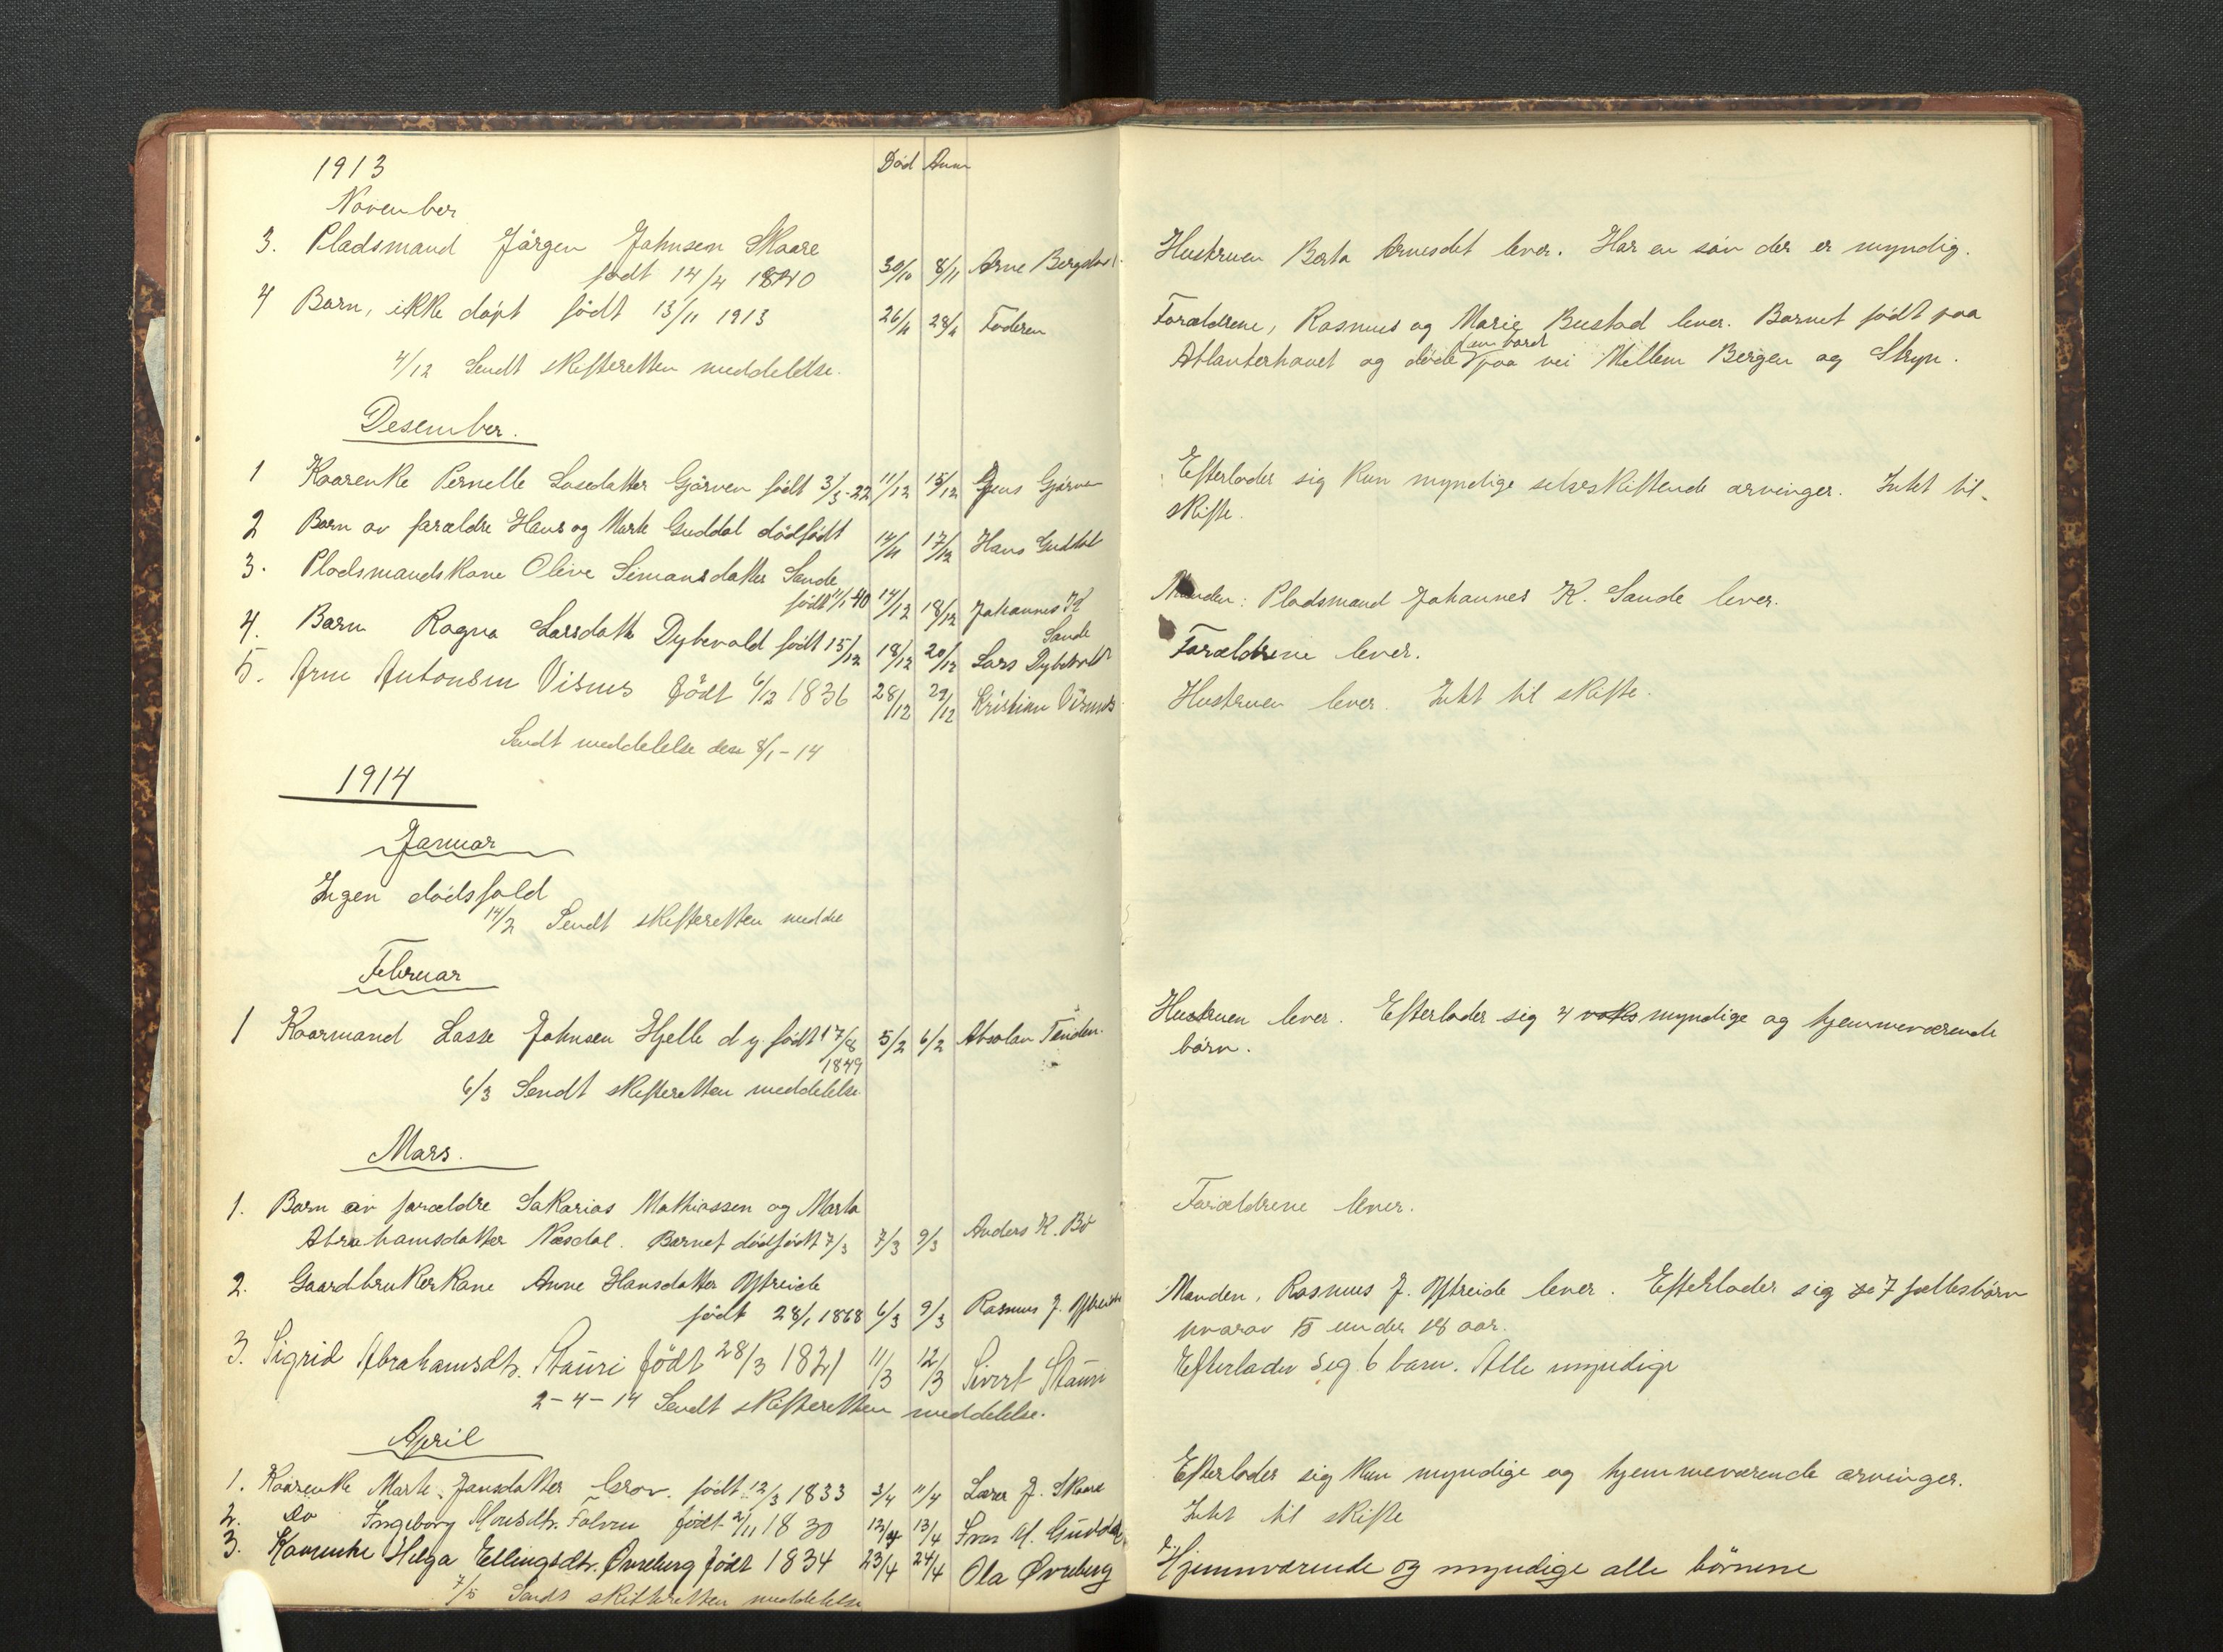 1913
Død Anm
November
3. Pladsmand Jørgen Johnsen Skaare
født 14/4 1840 30/10 8/11 Arne Bergsdal
Hustruen Berta Arnesdtt lever. Har en søn der er myndig.
4 Barn, ikke døpt født 13/11 1913 26/11 28/11 Faderen
Forældrene, Rasmus og Marie Bustad lever. Barnet født paa
Atlanterhavet og døde ombord paa vei Mellem Bergen og Stryn.
4/12 Sendt skifteretten meddelelse.
Desember.
1 Kaarenke Pernelle Lasedatter Gjørven født 3/3-22 11/12 15/12 Jens Gjørven
Efterlader sig kun myndige selvskiftende arvinger. Intet til
skifte.
2 Barn av forældre Hans og Marte Guddal dødfødt 14/11 17/12 Hans Guddal
3. Pladsmandskone Olive Simonsdatter Sande
født 11/1-40 14/12 18/12 Johannes K
Sande
Manden: Pladsmand Johannes K. Sande lever.
4. Barn Ragna Larsdatter Dybevald født 15/12 18/12 20/12 Lars Dybevald
Forældrene lever.
5. Arne Antonsen Visnes født 6/12 1836 28/12 29/12 Kristian Visnes
Hustruen lever. Intet til skifte.
Sendt meddelelse den 8/1-14
1914
Januar
Ingen dødsfald
14/2 Sendt skifteretten medde
Februar
1 Kaarmand Lasse Johnsen Hjelle d y. født 17/8
1849 5/2 6/2 Absolon Tenden.
Hustruen lever. Efterlader sig 4 myndige og hjemmeværende
børn.
6/3 Sendt skifteretten meddelelse.
Mars.
1. Barn av forældre Sakarias Mathiassen og Marta
Abrahamsdatter Nesdal. Barnet dødfødt 7/3 7/3 9/3 Anders K. Bø
Forældrene lever.
2. Gaardbrukerkone Anne Hansdatter Opstreide
født 28/1 1868 6/3 9/3 Rasmus J. Opstreide
Manden, Rasmus J. Opstreide lever. Efterlader sig 7 fællesbørn
hvorav 5 under 18 aar.
3. Sigrid Abrahamsdt. Stauri født 28/3 1821 11/3 12/3 Sivert Stauri
Efterlader sig 6 barn. Alle myndige
2-4-14 Sendt skifteretten meddelelse.
April
1. Kaarenke Marte Jonsdatter Grov. født 12/3 1833 3/4 11/4 Lars J. Skaare
Efterlader sig kun myndige og hjemmeværende arvinger.
Intet til skifte
2. Do Ingeborg Monsdt. Folven født 2/11 1830 12/4 13/4 Ivar M. Guddal
3. Kaarenke Helga Ellingsdt. Øvreberg født 1834 23/4 24/4 Ola Øvreberg
Hjemmværende og myndige alle børnene
7/5 Sendt skifteretten meddelelse